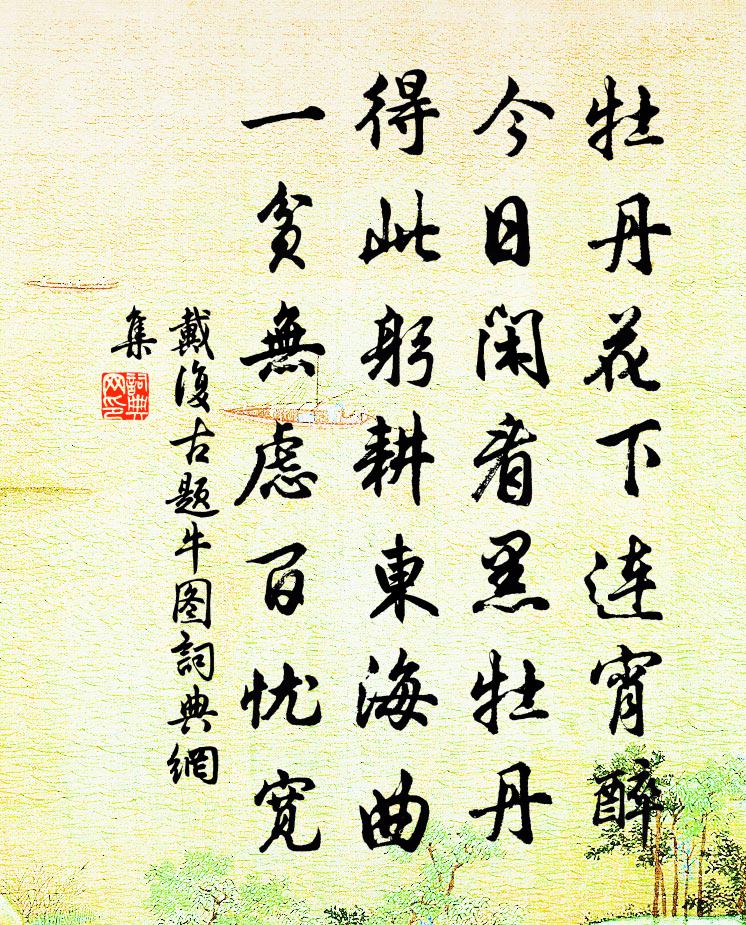 牡丹花下连宵醉
今日闲看黑牡丹
得此躬耕東海曲
一贫無虑百忧宽
戴復古题牛图詞典網
集
詞典
网印